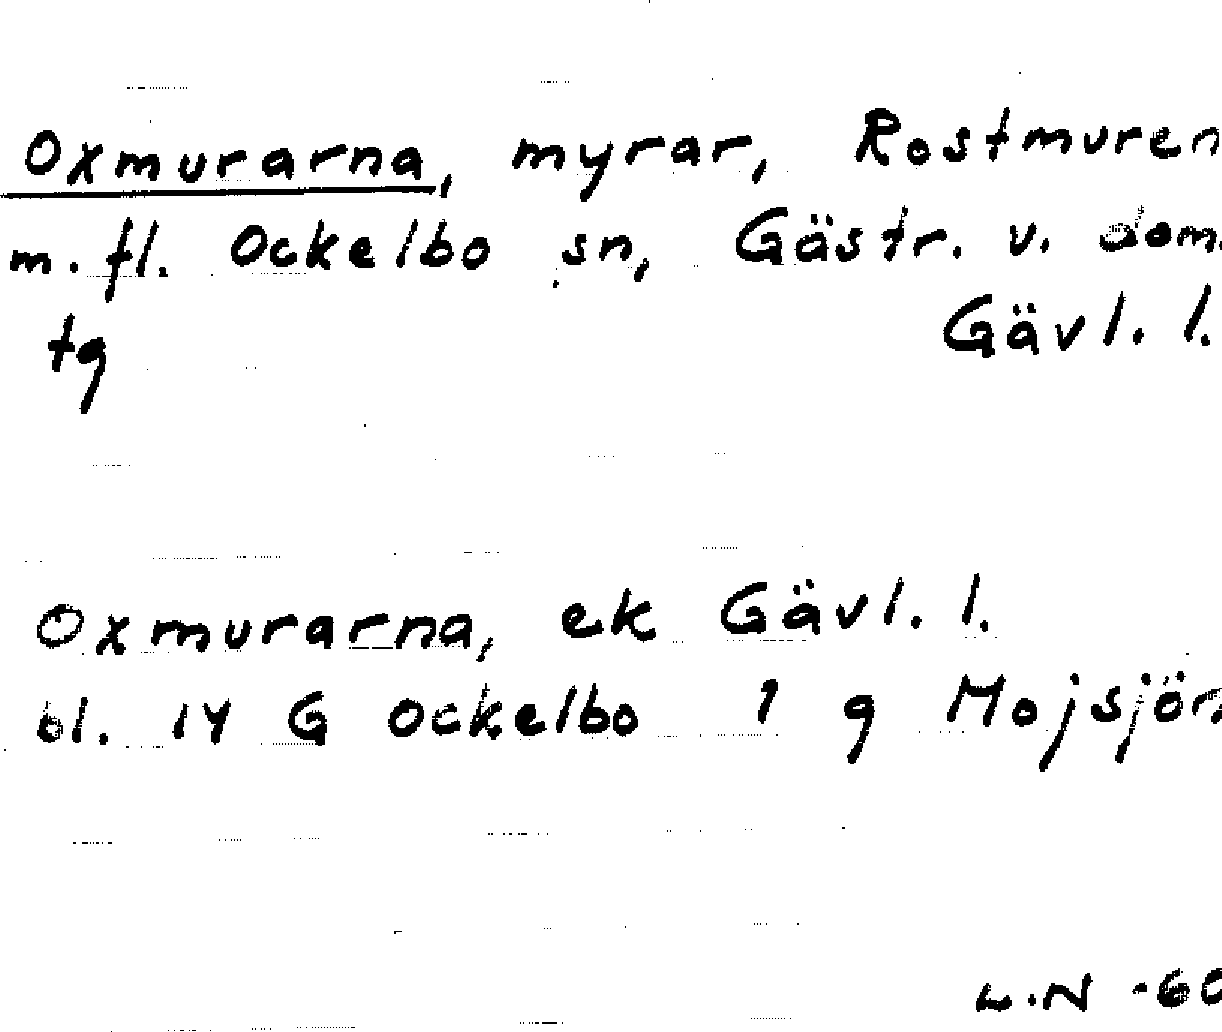 Oxmurarna, myrar, Rostmuren
m. fl. Ockelbo sn, Gästr. v. dom.
tg Gävl. l.
Oxmurarna, ek Gävl. l.
bl. 14 G Ockelbo 1 g Mojsjön
L.N -60